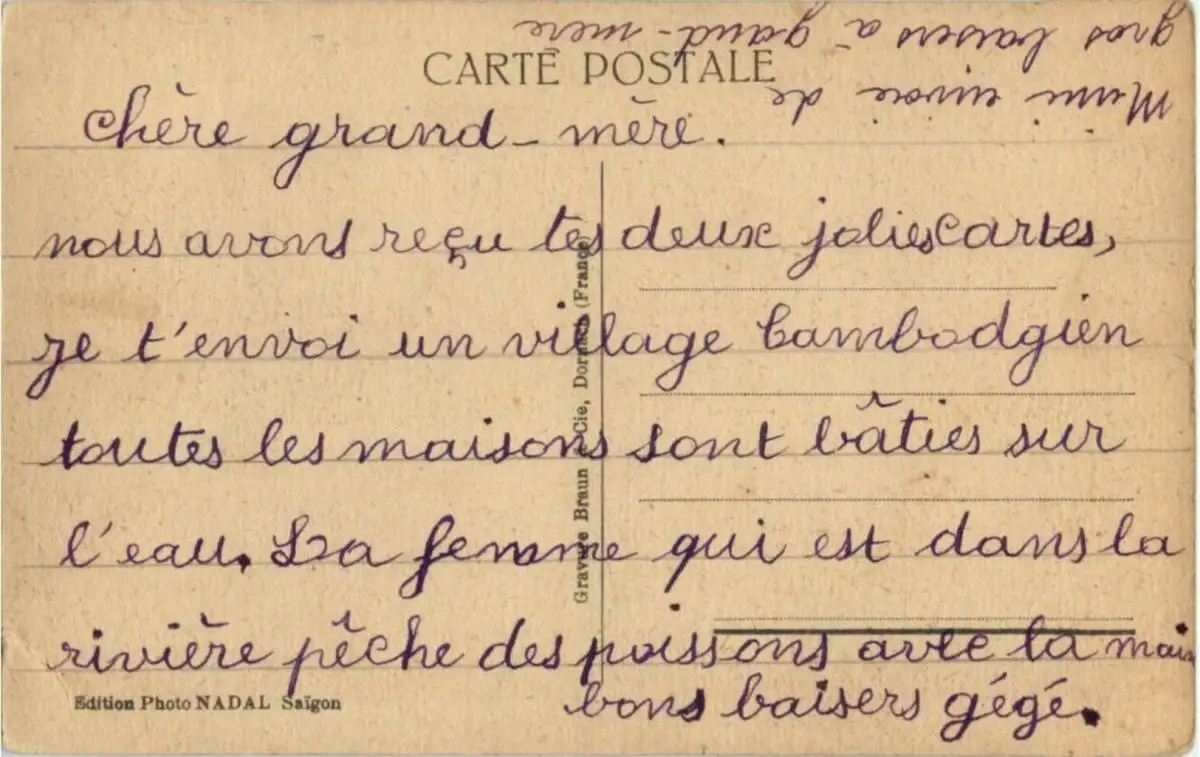 CARTE POSTALE
Mimi envoie de
gros baisers a gand-mere
chère grand-mère.
nous avons reçu tes deux jolies cartes,
je t'envoi un village Cambodgien
toutes les maisons sont bâties sur
l'eau. La femme qui est dans la
rivière pêche des poissons avec la main
bons baisers gégé.
Gravure Braun & Cie, Dornach (France)
Edition Photo NADAL Saïgon